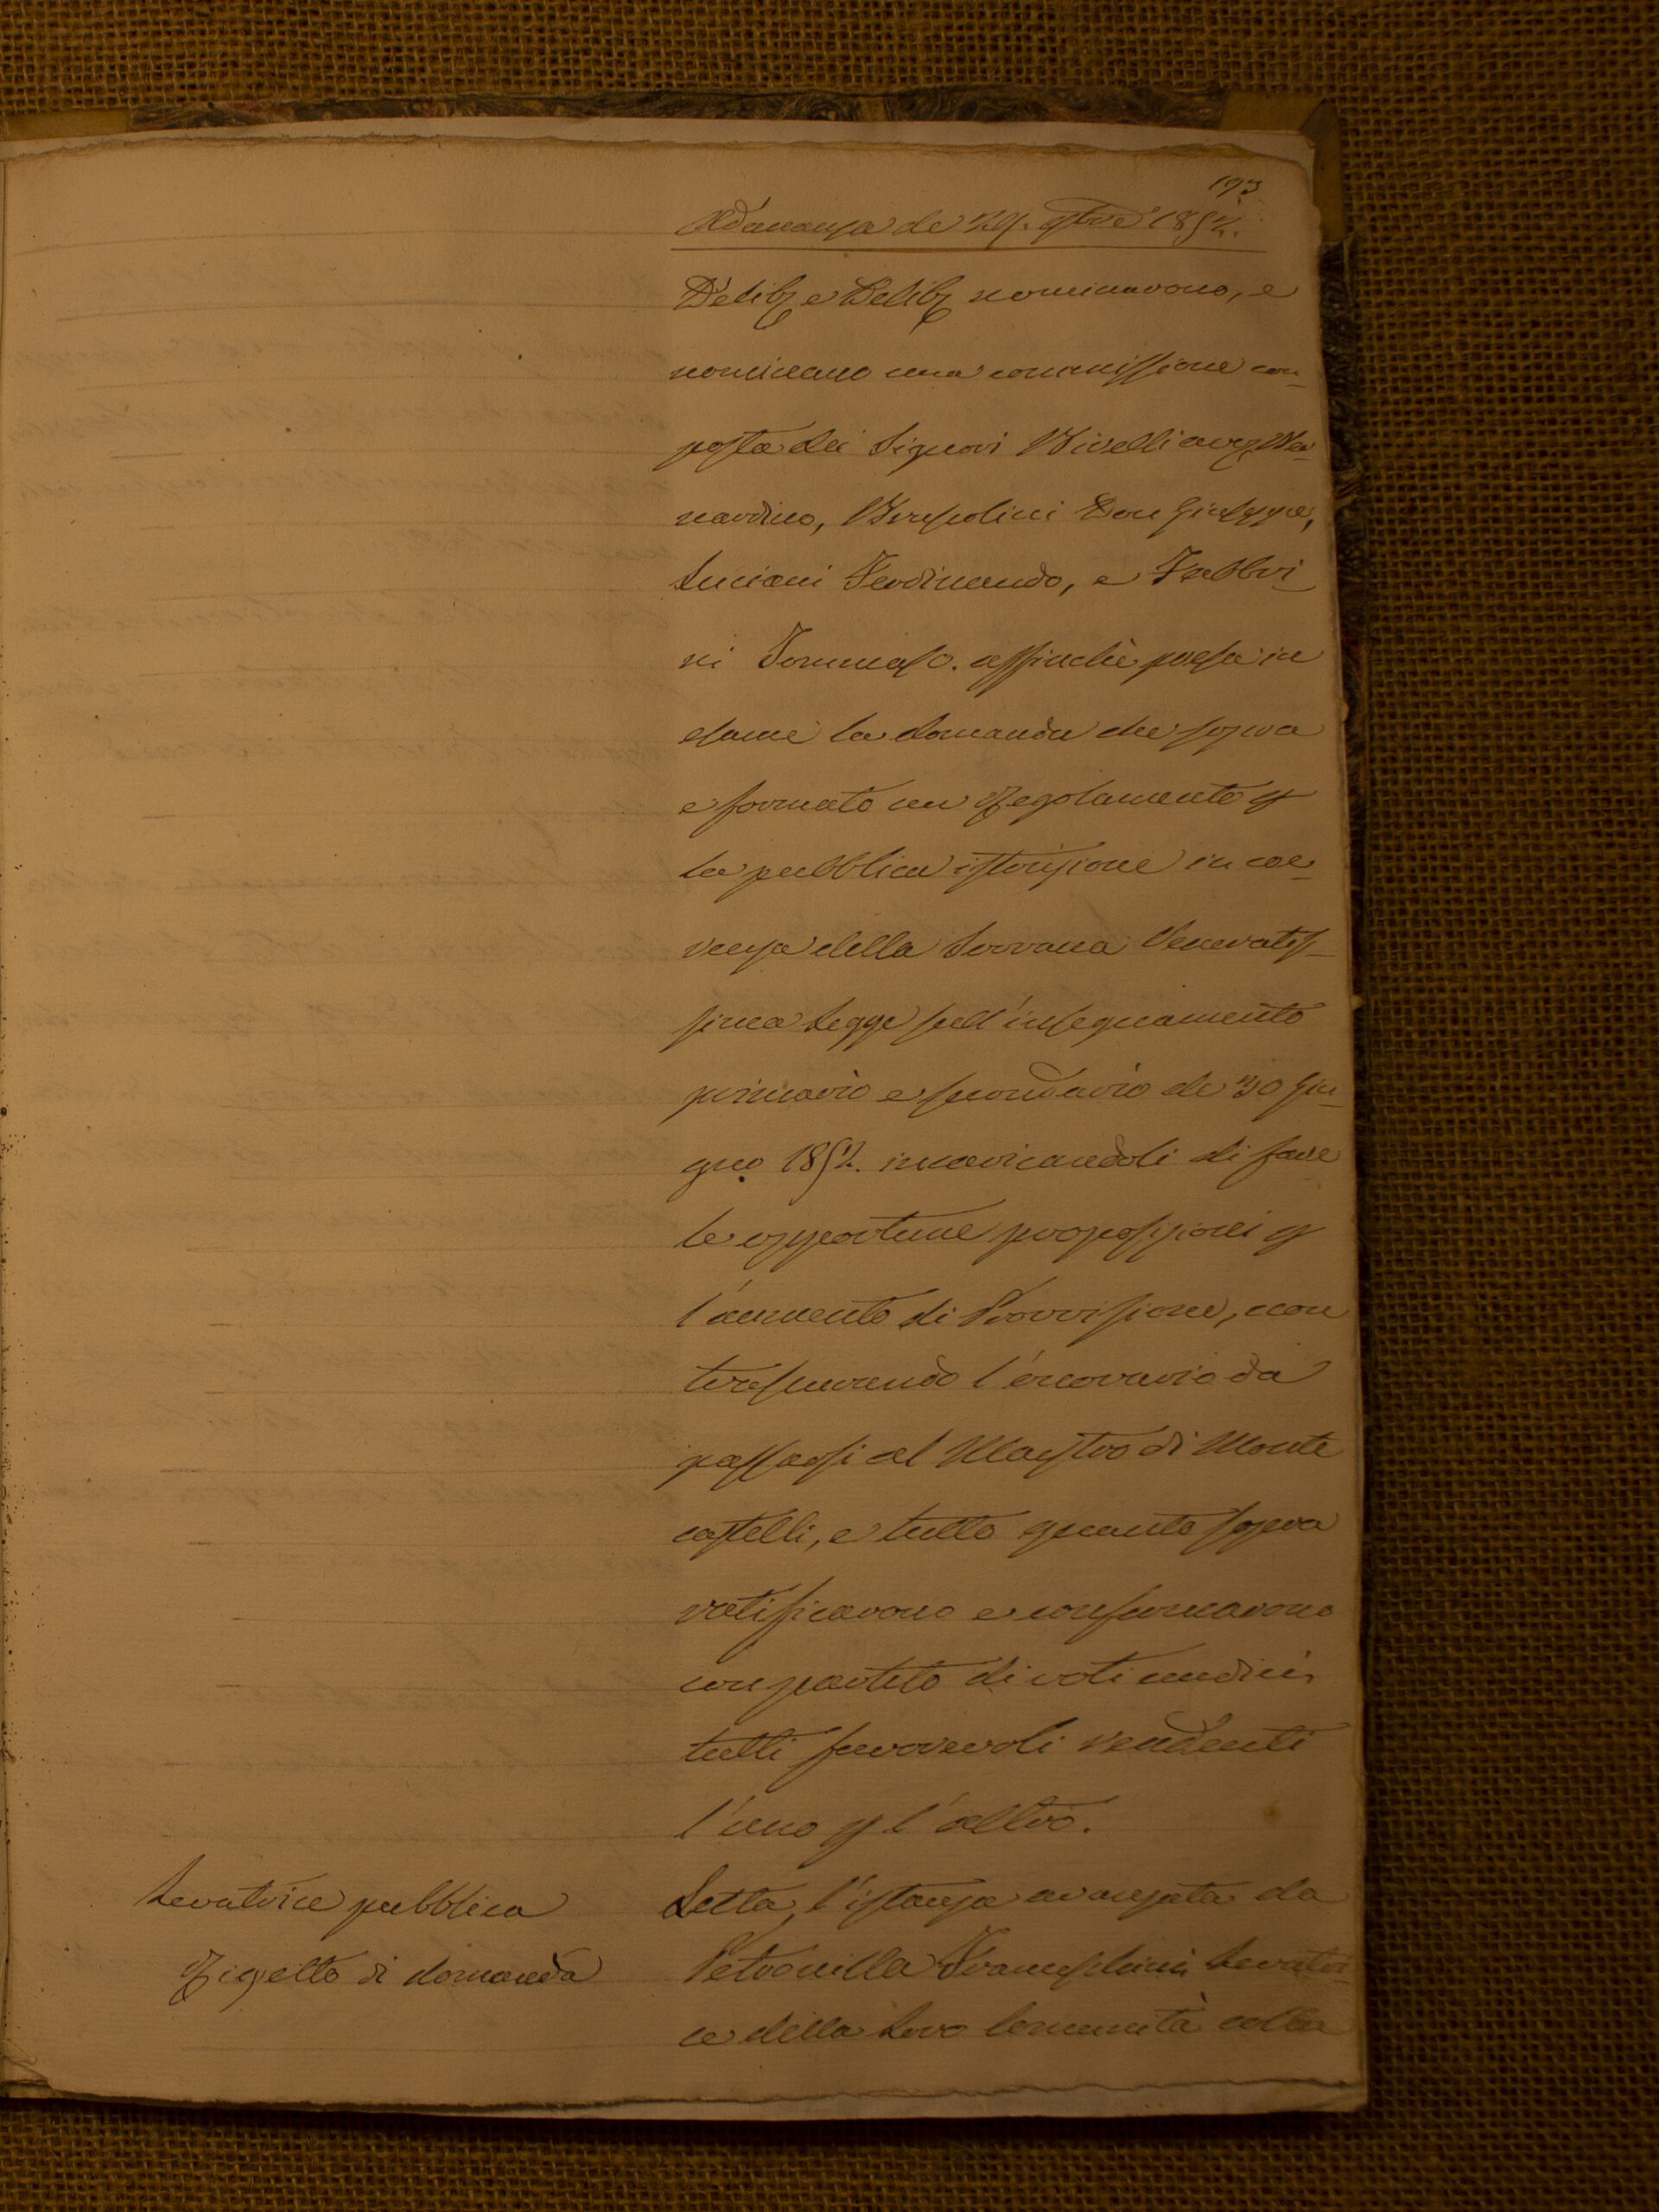 193
Adunanza de 29. 9bre 1852.
Delib. e Delib. nominarono, e
nominano una commissione com_
posta dei Signori Birelli Ber_
nardino, Don Giuseppe,
Luciani Ferdinando, e Fabbri_
ni Tommaso. affinchè presa in
esame la domanda che sopra
e formato un Regolamento p
la pubblica istruzione in coe_
renza della Sovrana Veneratis_
sima Legge sull'insegnamento
primario e secondario de 30 Giu_
gno 1852. incaricandoli di fare
le opportune proposizioni p
l'aumento di Provvisione, non
trascurando l'onorario da
passarsi al Maestro di Monte
castelli, e tutto quanto sopra
ratificarono e confermarono
con partito di voti undici
tutti favorevoli rendenti
l'uno p l'altro.
Levatrice pubblica
Rigetto di domanda
Letta l'istanza avanzata da
Petronilla Franceschini Levatri_
ce della Loro Comunità colla